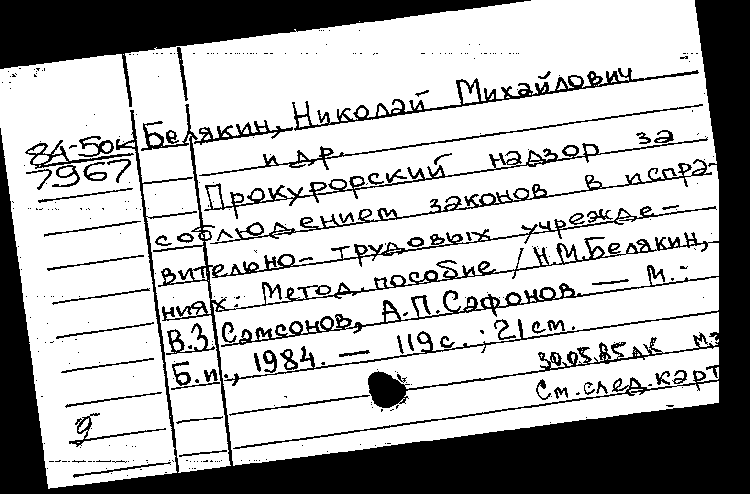 Белякин, Николай Михайлович
84-50к
7967
и др.
Прокурорский надзор за
соблюдением законов в испра-
вительно-трудовых учрежде-
ниях: Метод. пособие / Н.М.Белякин,
В.З. Самсонов, А.П.Сафонов. — М.:
Б.и., 1984. — 119 с.; 21 см.
30.05.85 ЛК МЗ
См. след. карт